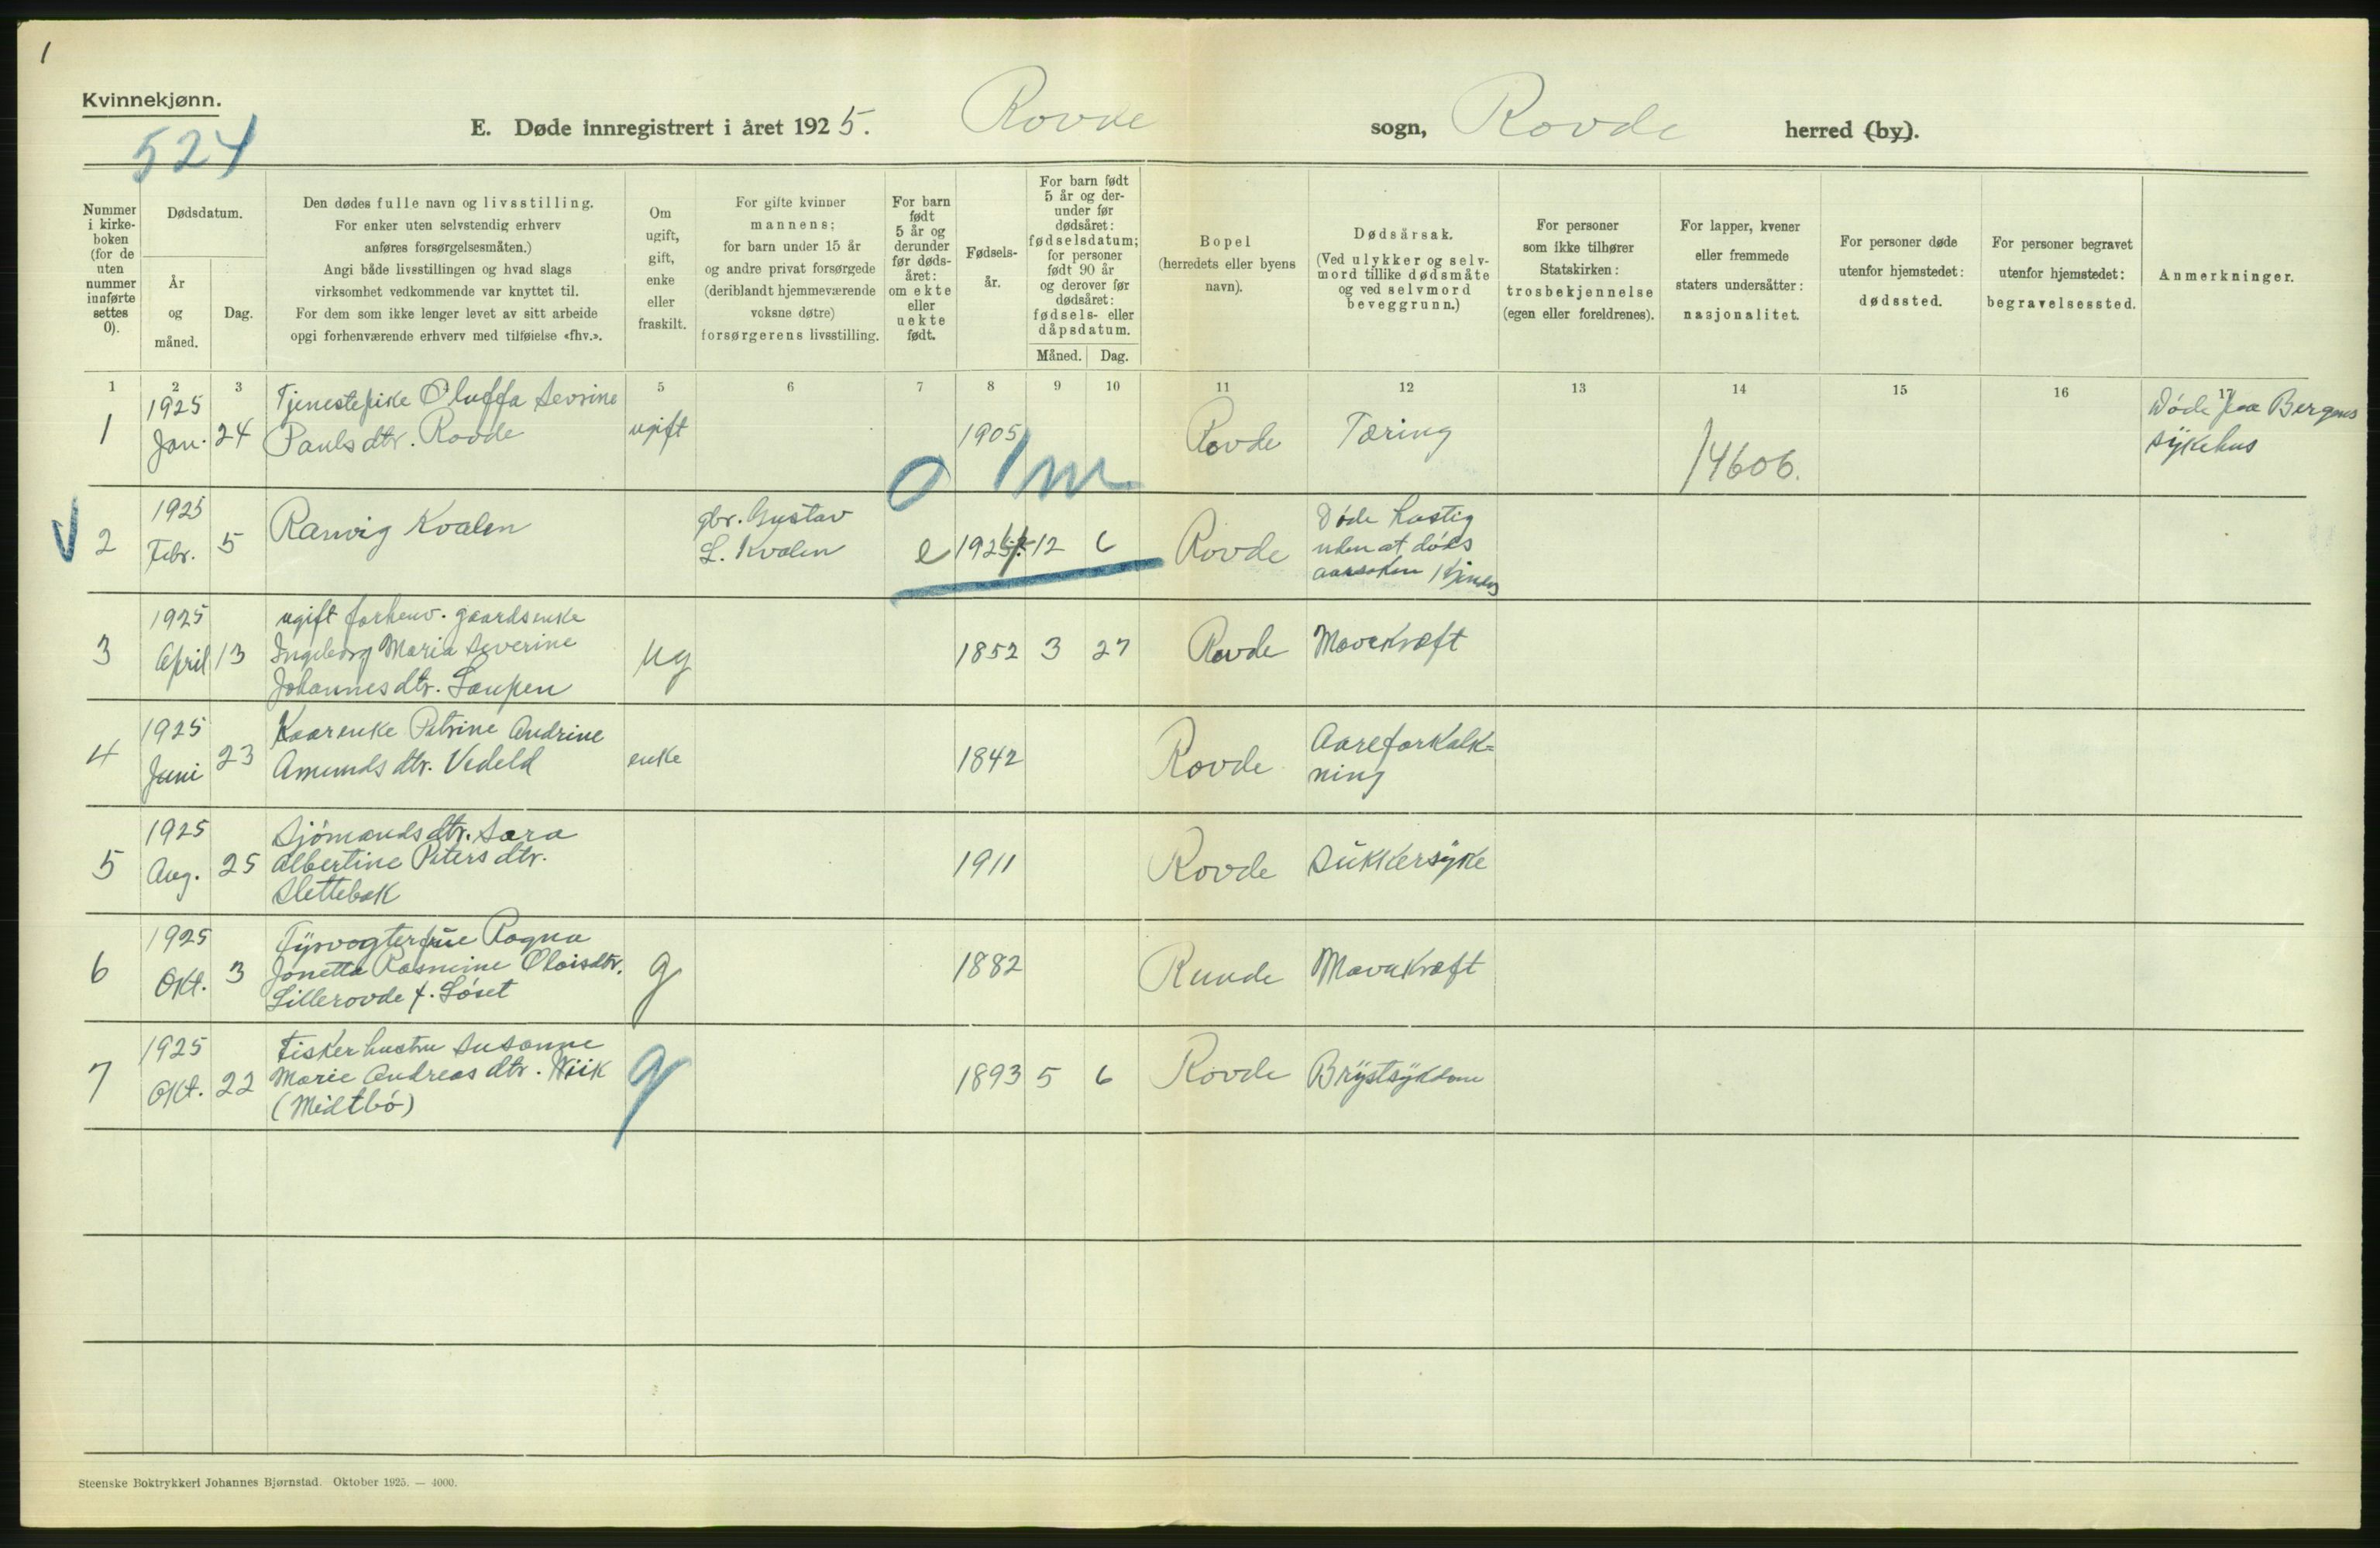 1
Kvinnekjønn.
524
E. Døde innregistrert i året 1925. Rovde sogn, Rovde herred (by).
Nummer i kirkeboken (for de uten nummer innførte settes 0).
Dødsdatum.
År og måned.
Dag.
Den dødes fulle navn og livsstilling.
For enker uten selvstendig erhverv
anføres forsørgelsesmåten.)
Angi både livsstillingen og hvad slags
virksomhet vedkommende var knyttet til.
For dem som ikke lenger levet av sitt arbeide
opgi forhenværende erhverv med tilføielse «fhv.».
Om ugift, gift, enke eller fraskilt.
For gifte kvinner
mannens;
for barn under 15 år
og andre privat forsørgede
(deriblandt hjemmeværende
voksne døtre)
forsørgerens livsstilling.
For barn født 5 år og derunder før dødsåret: om ekte eller uekte født.
Fødselsår.
For barn født 5 år og derunder før dødsåret: fødselsdatum; for personer født 90 år og derover før dødsåret: fødsels- eller dåpsdatum.
Måned. Dag.
Bopel
(herredets eller byens
navn).
Dødsårsak.
(Ved ulykker og selv-
mord tillike dødsmåte
og ved selvmord
beveggrunn.)
For personer
som ikke tilhører
Statskirken:
trosbekjennelse
(egen eller foreldrenes).
For lapper, kvener
eller fremmede
staters undersåtter:
nasjonalitet.
For personer døde
utenfor hjemstedet:
dødssted.
For personer begravet
utenfor hjemstedet:
begravelsessted.
Anmerkninger.
1 2 3 5 6 7 8 9 10 11 12 13 14 15 16 17
1 1925 Jan. 24 Tjenestepike Oluffa Sevrine
Paulsdtr. Rovde ugift 1905 Rovde Tæring 14606. Døde paa Bergens
sykehus
0 1 m
2 1925 Febr. 5 Ranvig Kvalen gbr. Gustav
L. Kvalen e 1924 12 6 Rovde Døde hastig
uden at døds
aarsaken
3 1925 April 13 ugift forhenv. gaardsenke
Ingeborg Maria Severine
Johannesdtr. Laupen ug 1852 3 27 Rovde Mavekræft
4 1925 Juni 23 Kaarenke Petrine Andrine
Amundsdtr. Vedeld enke 1842 Rovde Aareforkalk=
ning
5 1925 Aug. 25 Sjómandsdtr. Sara
Albertine Petersdtr.
Slettebak 1911 Rovde Sukkersyke
6 1925 Okt. 3 Fyrvogterfrue Ragna
Jonetta Rasmine Olaisdtr.
Lillerovde f. Lóset g 1882 Runde Mavekræft
7 1925 Okt. 22 Fiskerhustru Susanne
Marie Andreasdtr. Wiik
(Midtbó) g 1893 5 6 Rovde Brystsykdom
Steenske Boktrykkeri Johannes Bjørnstad. Oktober 1925. — 4000.